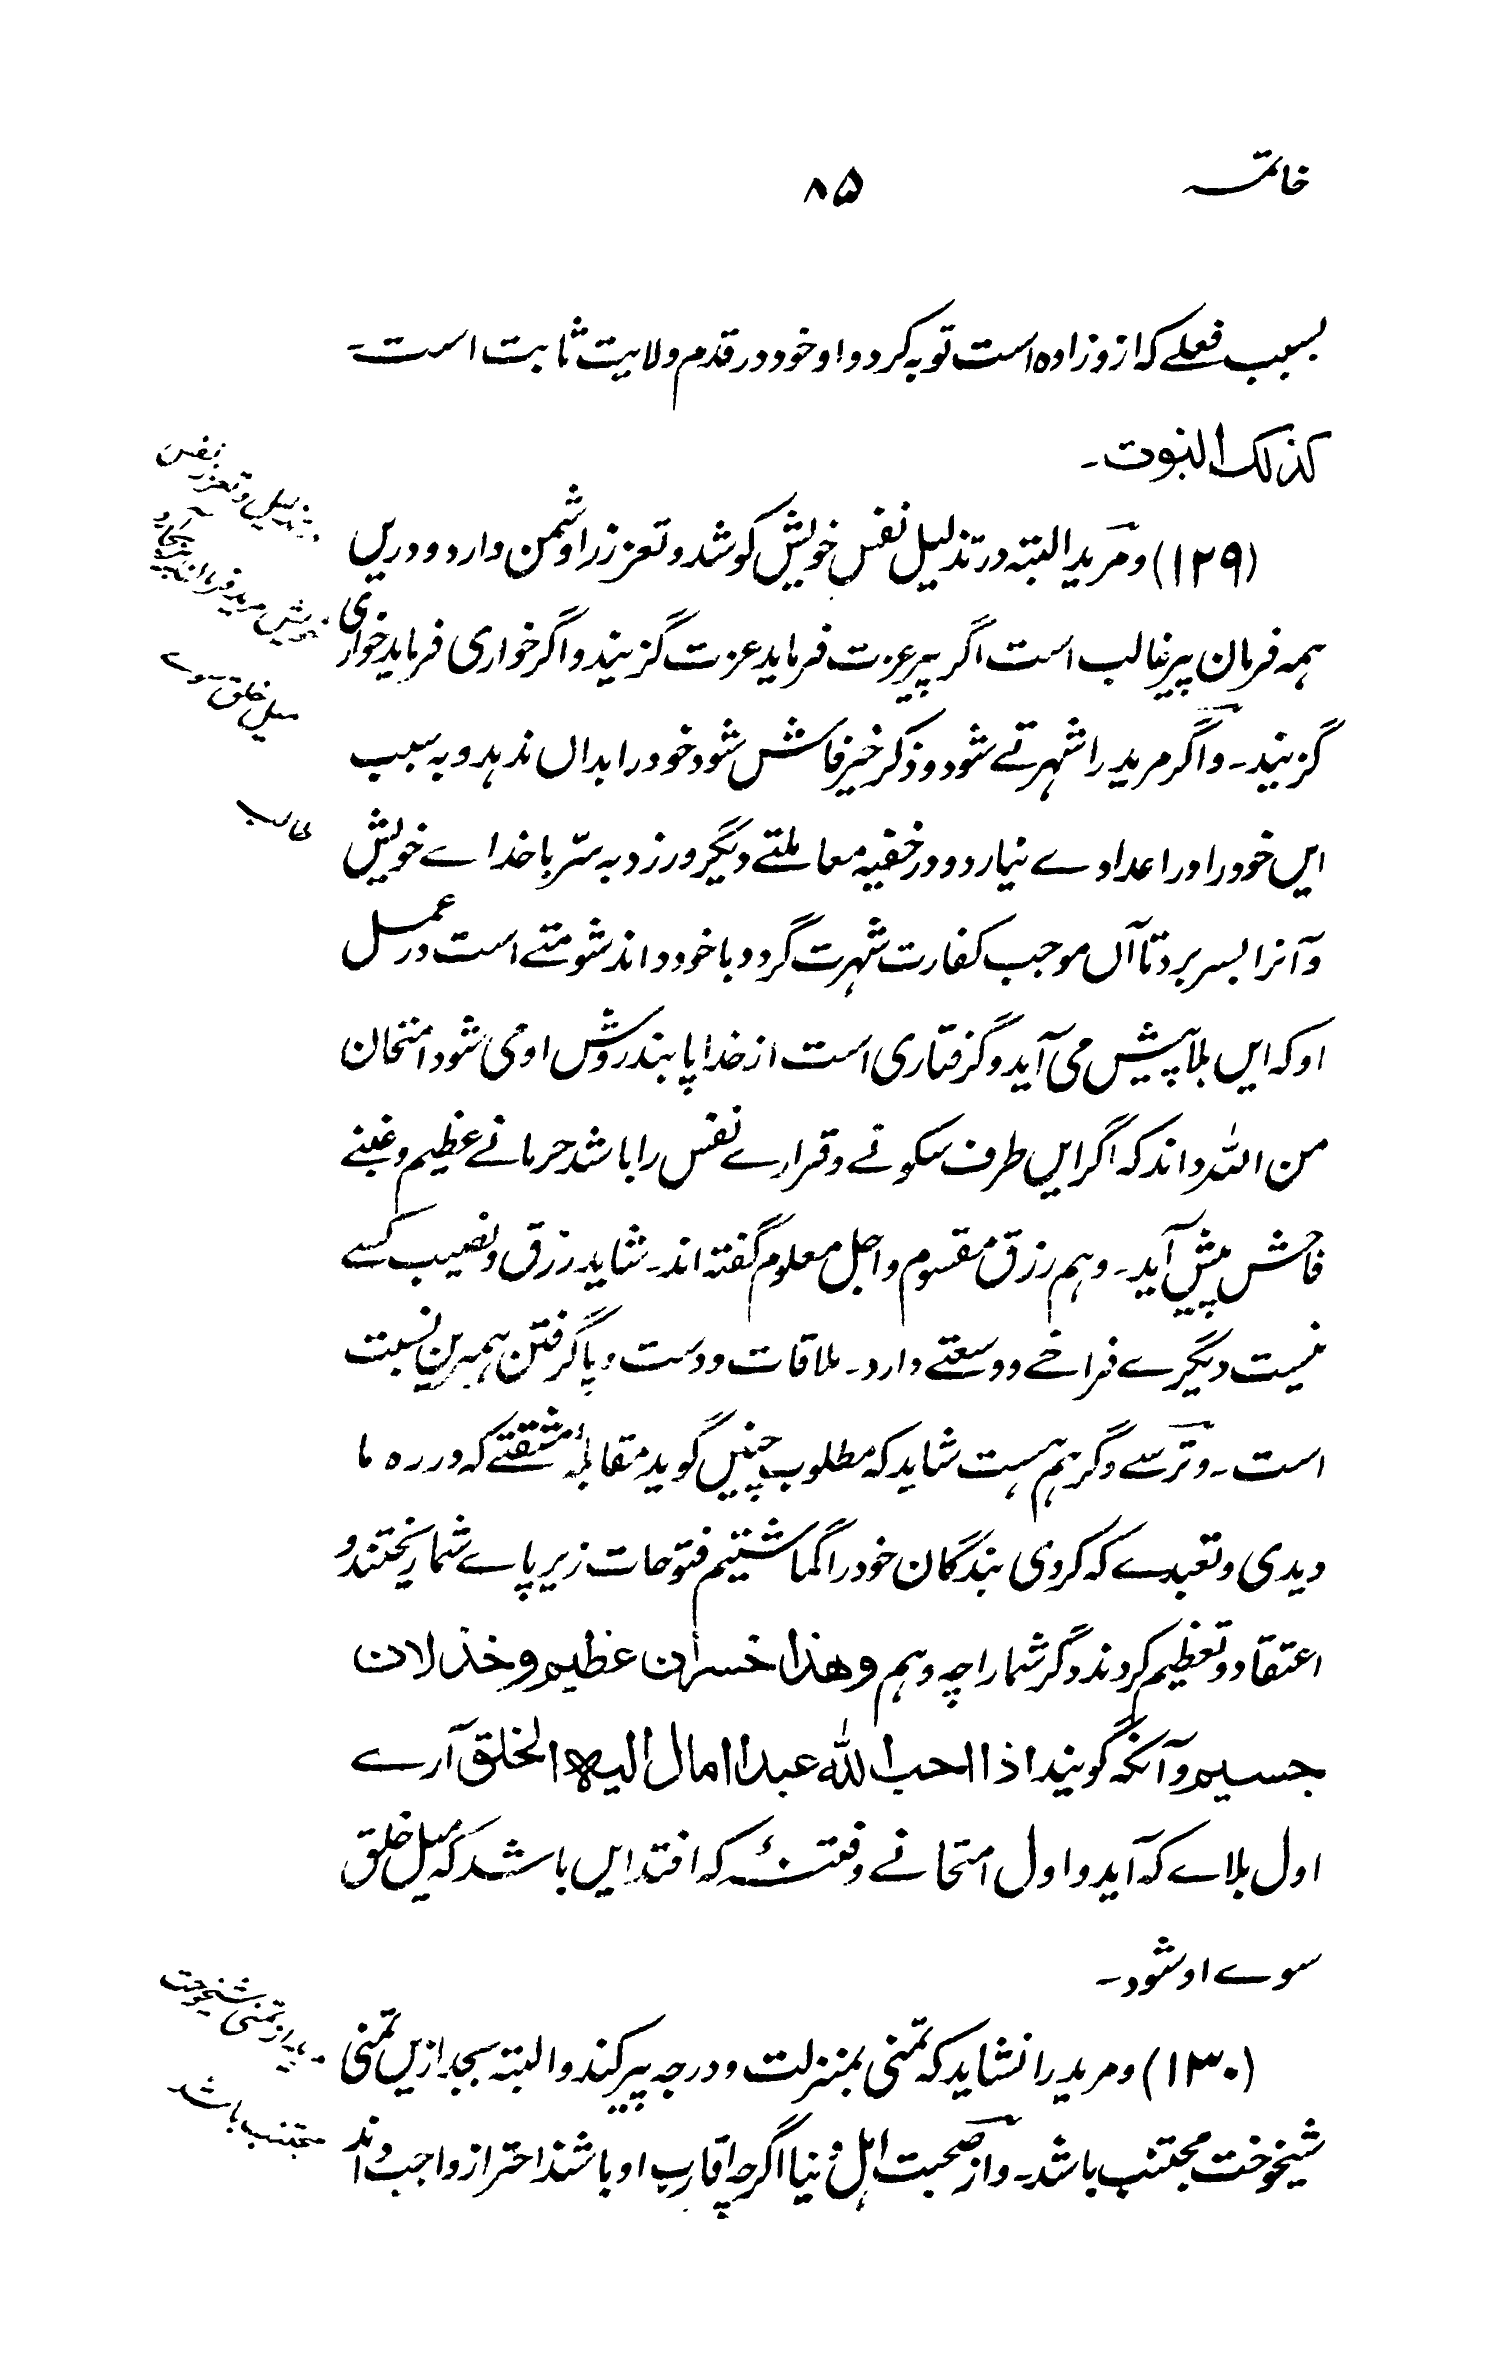 خاتمہ
۸۵
بسبب فعلے کہ ازو زادہ است توبہ کرد و او خود در قدم ولایت ثابت است۔
کذلک النبوت۔
(۱۲۹) و مرید البتہ در تذلیل نفس خویش کوشد و تعزز را دشمن دارد و دریں
ہمہ فرمان پیر غالب است اگر پیر عزت فرماید عزت گزیند و اگر خواری فرماید خواری
گزیند۔ و اگر مرید را شہرتے شود و ذکر خیر فاش شود خود را بداں ندہد و بہ سبب
ایں خود را در اعداد وے نیارد و در خفیہ معاملتے دیگر ورزد بہ سرّ با خداے خویش
و آنرا بسر برد تا آں موجب کفارت شہرت گردد با خود داند شومتے است در عمل
او کہ ایں بلا پیش می آید و گرفتاری است از خدا پابند روش او می شود امتحان
من اللہ داند کہ اگر ایں طرف سکونے و قرارے نفس را باشد حرمانے عظیم و غبنے
فاحش پیش آید۔ و ہم رزق مقسوم و اجل معلوم گفتہ اند۔ شاید رزق و نصیب کسے
نیست دیگرے فراخے و وسعتے دارد۔ ملاقات و دست و پا گرفتن ہمبریں نسبت
است۔ و ترسے دگر ہم ہست شاید کہ مطلوب چنیں گوید مقابلۂ مشقتے کہ در رہ ما
دیدی و تعبدے کہ کردی بندگان خود را گماشتیم فتوحات زیر پاے شما ریختند و
اعتقاد و تعظیم کردند دگر شما را چہ دہم وهذا خسران عظیم و خذلان
جسیم و آنکہ گویند اذا احب اللہ عبدا امال الیہ الخلق آرے
اول بلاے کہ آید و اول امتحانے و فتنۂ کہ افتد ایں باشد کہ میل خلق
سوے او شود۔
(۱۳۰) و مرید را نشاید کہ تمنی بمنزلت و درجہ پیر کند و البتہ بجد ازیں تمنی
شیخوخت مجتنب باشد۔ و از صحبت اہل دنیا اگرچہ اقارب او باشند احتراز واجب داند
تذلیل و تعزز نفس
خویش مرید
میل خلق سوے
طالب
مرید از تمنی شیخوخت
مجتنب باشد